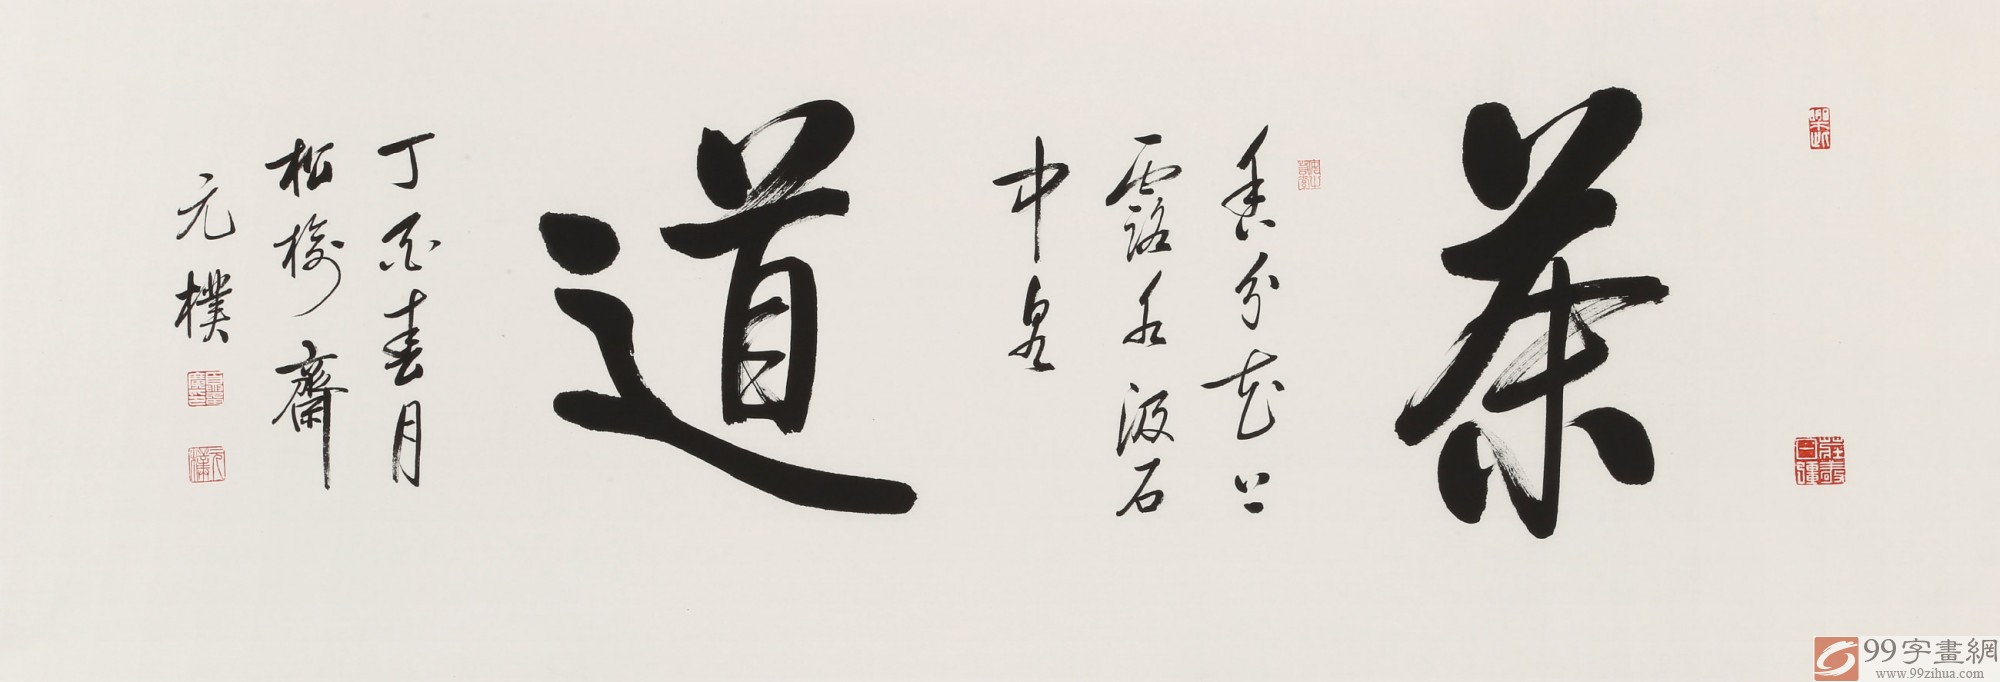 茶
香分花上
露水汲石
中泉
道
丁酉春月
松梅齋
元樸
99字畫網
www.99zihua.com